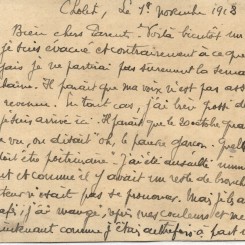 Cholet, le 1er novembre 1918
Bien chers Parent. Voilà bientôt un
je suis évacué et contrairement à ce que
je ne partirai pas sûrement la semai
chaine. Il parait que ma voix n'est pas ass
revenue. En tout cas, j'ai bien
depuis arrivé ici. Il parait que le 20 octobre quan
vu, on disait "oh, le pauvre garçon.
était poitrinaire. J'ai été ausculté
et comme il y avait un reste de bronch
n'était pas se prononcer. Mais j'ai
j'ai mangé, repris mes couleurs et me
maintenant comme j'étais autrefois à part